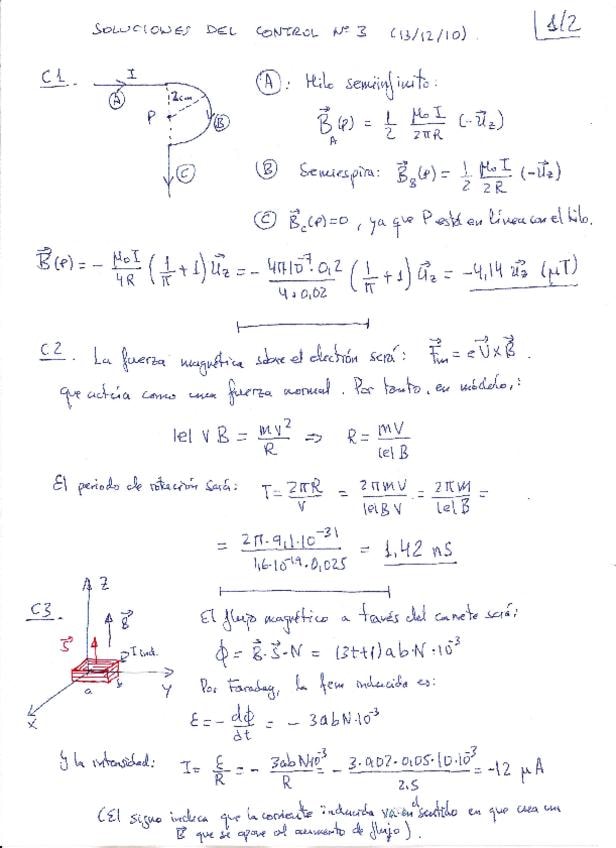 SOLUCIONES DEL CONTROL Nº 3 (13/12/10). 1/2
C1. I A 2cm P B C
(A): Hilo semiinfinito:
B⃗_A(P) = 1/2 μ₀I/2πR (-u⃗z)
(B) Semiespira: B⃗_B(P) = 1/2 μ₀I/2R (-u⃗z)
(C) B⃗c(P)=0, ya que P está en línea con el hilo.
B⃗(P) = - μ₀I/4R (1/π + 1) u⃗z = - 4π10⁻⁷·0,2/4·0,02 (1/π + 1) u⃗z = -4,14 u⃗z (μT)
C2. La fuerza magnética sobre el electrón será: F⃗m = e v⃗ x B⃗.
que actúa como una fuerza normal. Por tanto, en módulo,:
|e| v B = mv²/R ⇒ R = mv/|e|B
El periodo de rotación será: T = 2πR/v = 2πmv/|e|Bv = 2πm/|e|B =
= 2π·9,1·10⁻³¹/1,6·10⁻¹⁹·0,025 = 1,42 ns
C3. Z B⃗ S⃗ I ind. a b Y X
El flujo magnético a través del carrete será:
ϕ = B⃗·S⃗·N = (3t+1) ab·N·10⁻³
Por Faraday, la fem inducida es:
ε = - dϕ/dt = - 3abN·10⁻³
Y la intensidad: I = ε/R = - 3abN10⁻³/R = - 3·0,02·0,05·10·10⁻³/2.5 = -12 μA
(El signo indica que la corriente inducida va en el sentido en que crea un
B⃗ que se opone al aumento de flujo).